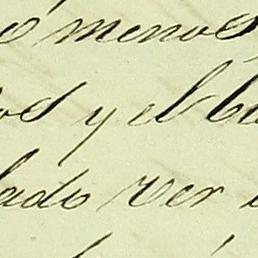 o menos
os y el ba
lado ver